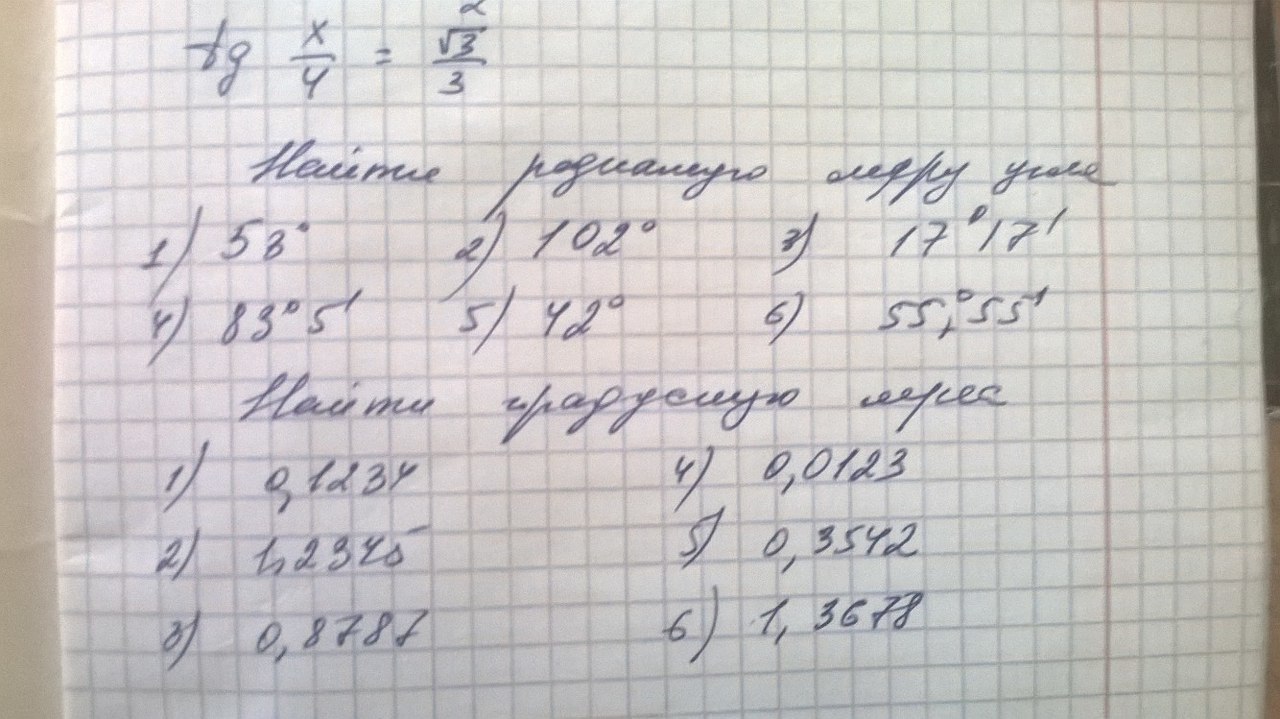 tg x/4 = √3/3
Найти радианную меру угла
1) 53° 2) 102° 3) 17°17'
4) 83°5' 5) 42° 6) 55°55'
Найти градусную меру
1) 0,1234 4) 0,0123
2) 1,2345 5) 0,3542
3) 0,8787 6) 1,3678